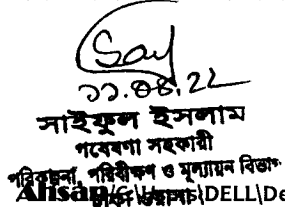 Say
১১.০৪.২২
সাইফুল ইসলাম
গবেষণা সহকারী
পরিকল্পনা, পরিবীক্ষণ ও মূল্যায়ন বিভাগ
Ahsan \DELL\De